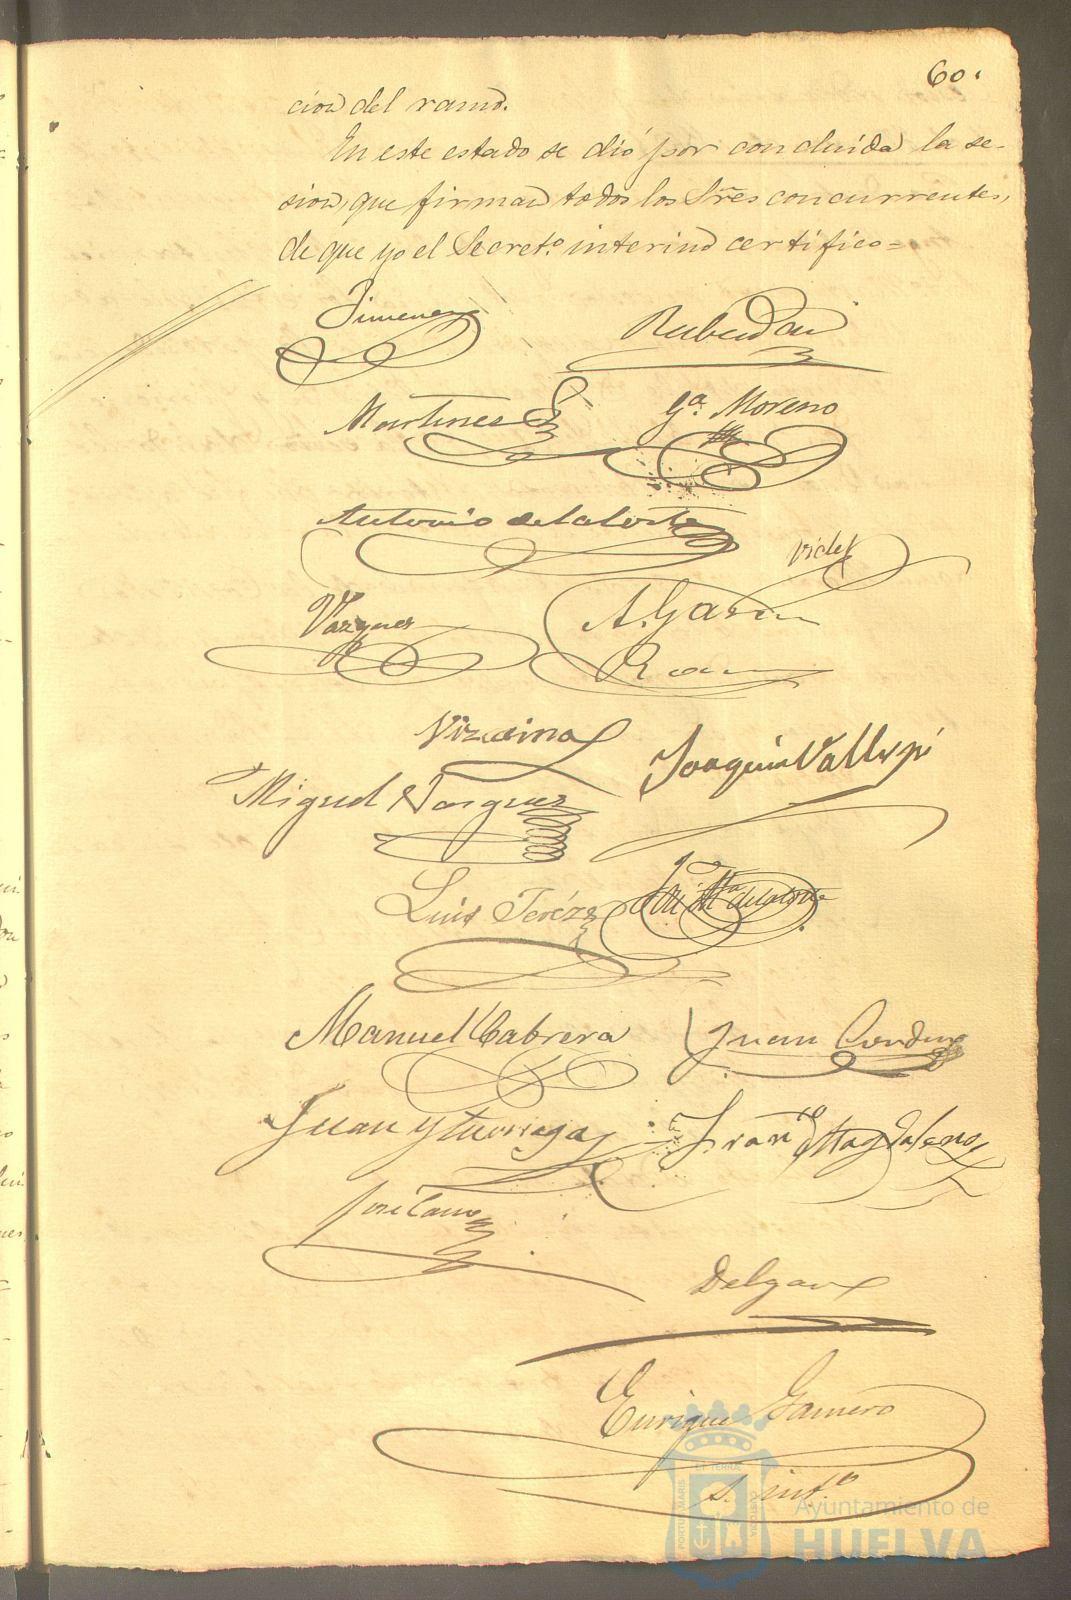 60.
cion del ramo.
En este estado se dió por concluida la se-
sion, que firman todos los Sres concurrentes,
de que yo el Secret.o interino certifico=
Jimenez
Martinez
Ga. Moreno
Antonio de la Corte
Videl
Vazquez
A. Garcia
Vizcaino
Joaquin Vallespi
Miguel Vazquez
Luis Teréze
José Ma de la Corte
Manuel Cabrera
Juan
Juan Yturriaga
Franco Magdaleno
José Cano
Enrique Gamero
s. into.
PORTUS MARIS
ET TERRAE
CUSTODIA
Ayuntamiento de
HUELVA